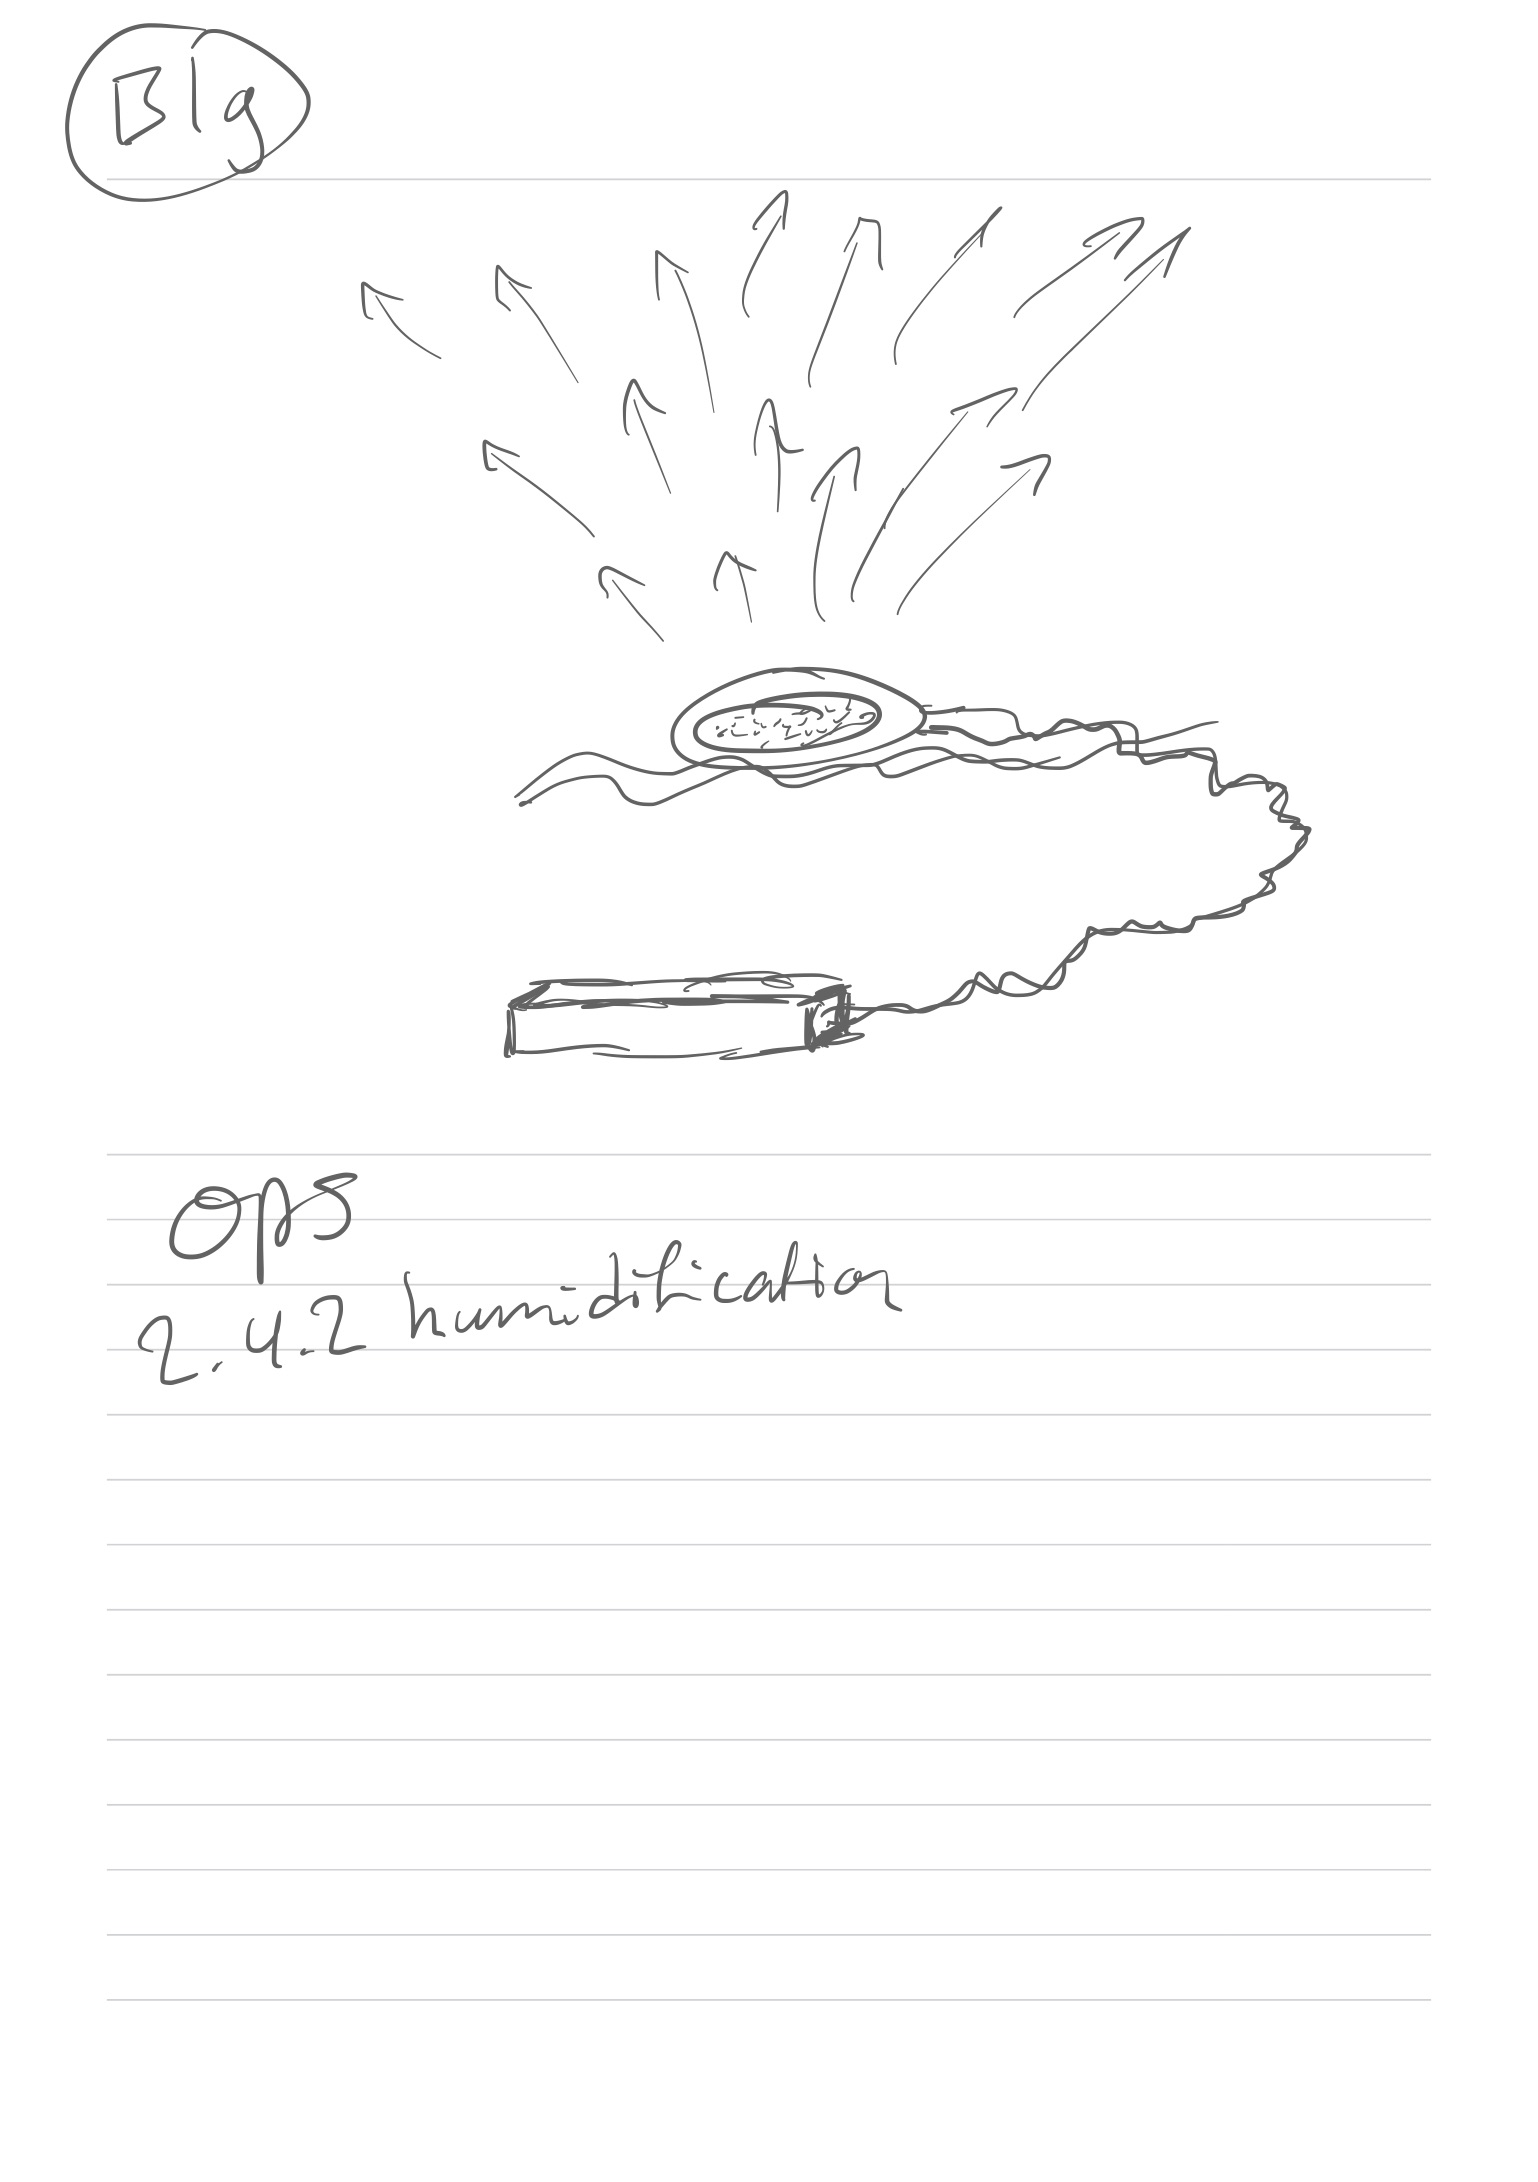 Blg
Ops
2.4.2 humidification